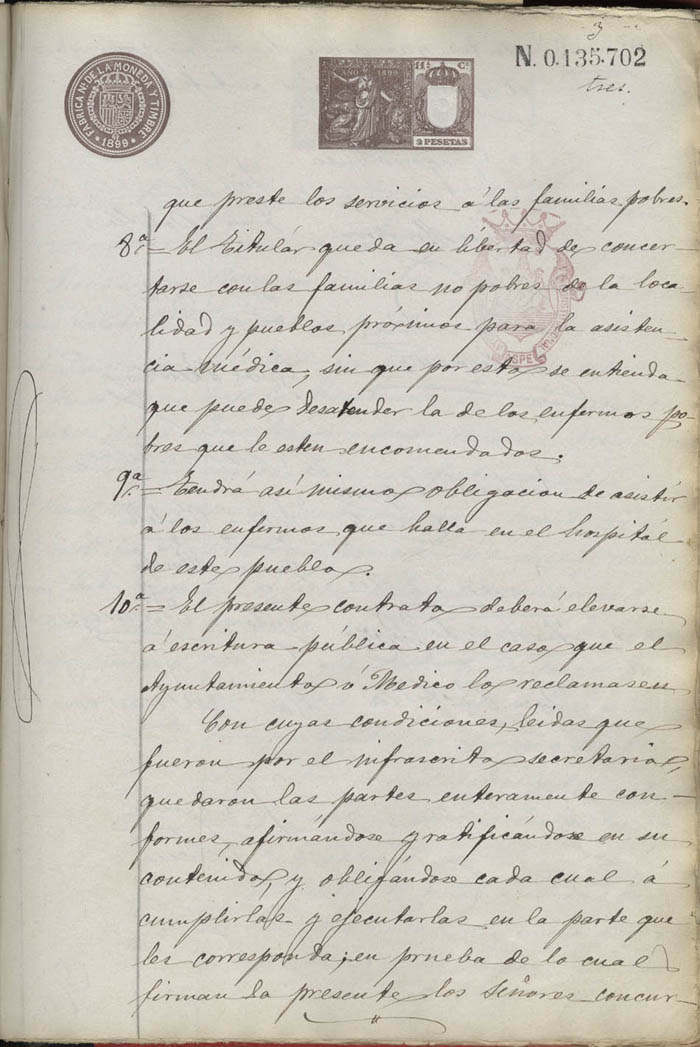 3
N. 0.135.702
tres.
FABRICA NL. DE LA MONEDA Y TIMBRE
1899
AÑO 1899
11ª Cª
2 PESETAS
que preste los servicios á las familias pobres.
8ª= El Titulár queda en libertad de concer-
tarse con las familias no pobres de la loca-
lidad y pueblos próximos para la asisten-
cia médica, sin que por esto se entienda
que puede desatender la de los enfermos po-
bres que le esten encomendados.
9ª= Tendrá asi mismo obligacion de asistir
á los enfermos que halla en el hospitál
de este pueblo.
10ª= El presente contrato deberá elevarse
á escritura pública en el caso que el
Ayuntamiento ó Medico lo reclamasen
Con cuyas condiciones, leidas que
fueron por el infrascrito secretario,
quedaron las partes enteramente con-
formes, afirmándose y ratificándose en su
contenido, y obligándose cada cual á
cumplirlas y ejecutarlas en la parte que
les corresponda; en prueba de lo cual
firman la presente los Señores concur-